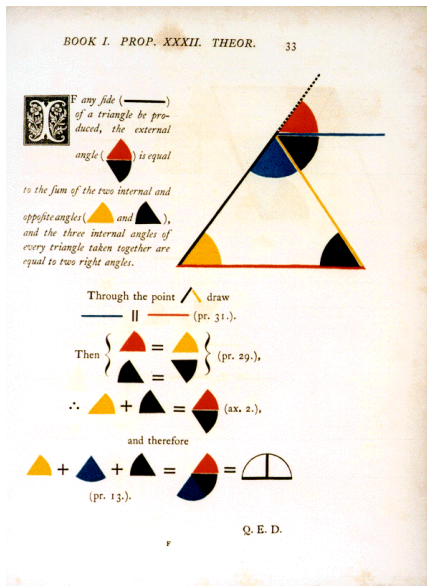 BOOK I. PROP. XXXII. THEOR.
33
IF any ſide (
)
of a triangle be pro-
duced, the external
angle (
) is equal
to the ſum of the two internal and
oppoſite angles (
and
),
and the three internal angles of
every triangle taken together are
equal to two right angles.
Through the point
draw
|| 
(pr. 31.).
Then {
=
} (pr. 29.),
=
∴
+
=
(ax. 2.),
and therefore
+
+
=
=
(pr. 13.).
Q. E. D.
F